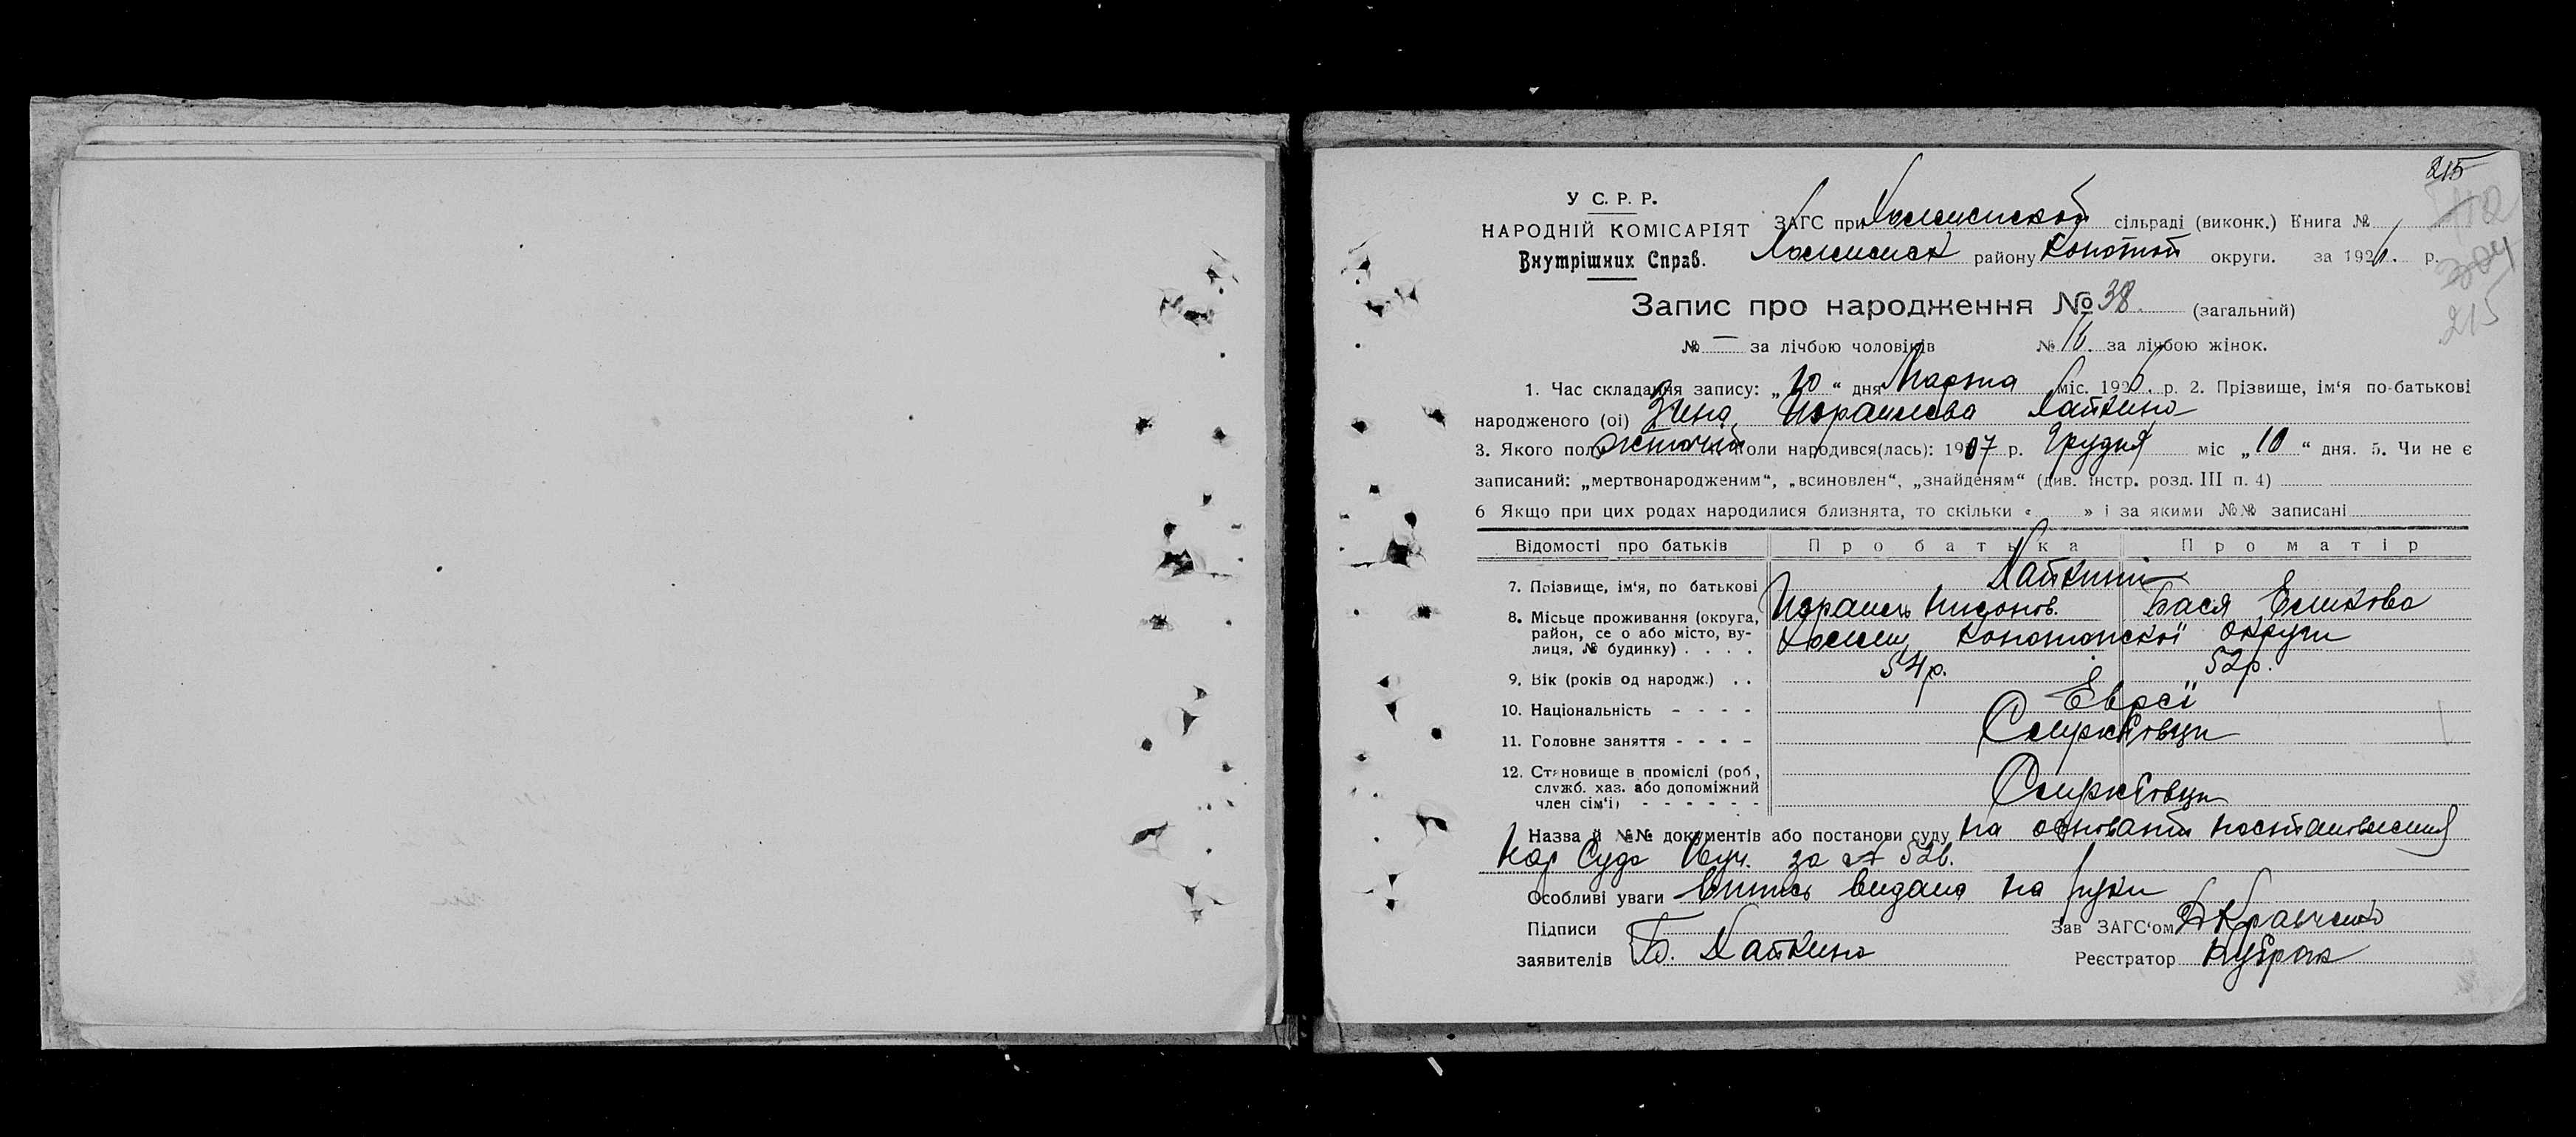 215
У С. Р. Р.
НАРОДНІЙ КОМІСАРІЯТ
Внутрішних Справ.
ЗАГС при Холмспской сільраді (виконк.) Книга №
Холмск району Конотоп округи. за 1926. р.
304
215
Запис про народження № 38. (загальний)
№ — за лічбою чоловіків № 16. за лічбою жінок.
1. Час складання запису: „10“ дня Марта міс. 1926. р. 2. Прізвище, ім'я по-батькові
народженого (ої) Зина Израилева Хайкина
3. Якого полу жіночий коли народився(лась): 1907 р. Грудня міс „10“ дня. 5. Чи не є
записаний: „мертвонародженим“, „всиновлен“, „знайденям“ (див. інстр. розд. III п. 4)
6 Якщо при цих родах народилися близнята, то скільки « » і за якими №№ записані
Відомості про батьків Про батька Про матір
7. Прізвище, ім'я, по батькові Хайкини
Израиль Нисонов. Бася
8. Місьце проживання (округа, район, село або місто, вулиця, № будинку) . . . . Холмы, Конотопської округи
9. Вік (років од народж.) . . 54р. 52р.
10. Національність - - - - Євреї
11. Головне заняття - - - -
12. Становище в промислі (роб., служб. хаз. або допоміжний член сім'ї) - - - - - -
Назва й №№ документів або постанови суду На основании постановления
Нар Суда 16уч. за № 526.
Особливі уваги Випись видана на руки
Підписи Зав ЗАГС'ом Кравченко
заявителів Б. Хайкина Реєстратор Кубрак